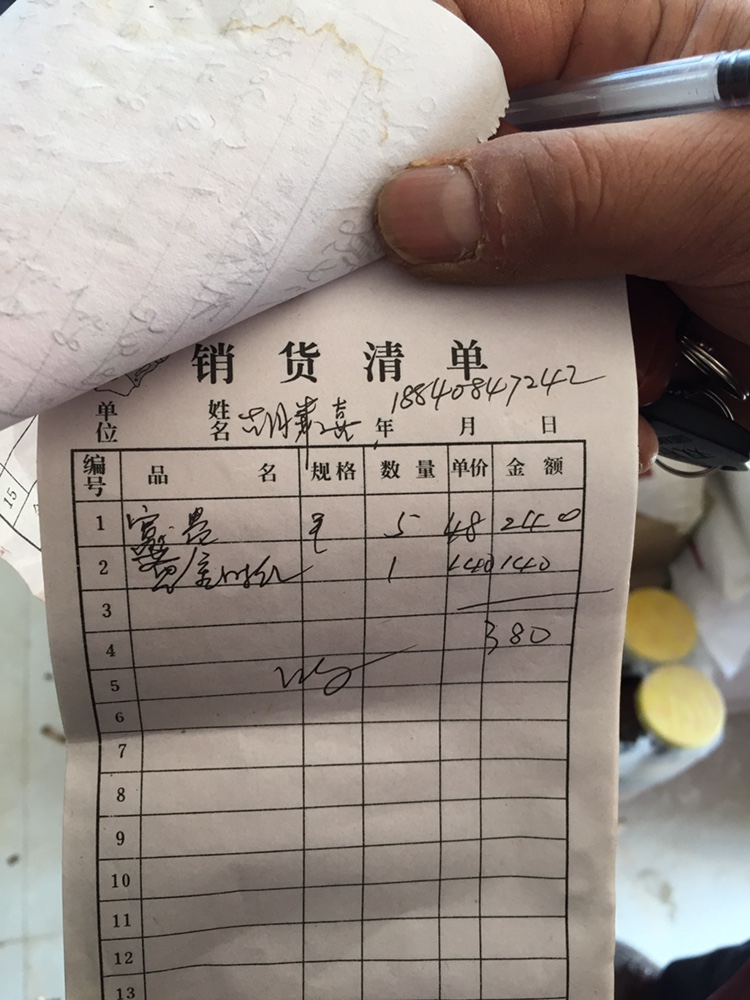 销货清单
18840847242
单位 姓名 胡 年 月 日
编号 品名 规格 数量 单价 金额
1 富贵 5 48 240
2 1 140 140
3
4 380
5
6
7
8
9
10
11
12
13
15